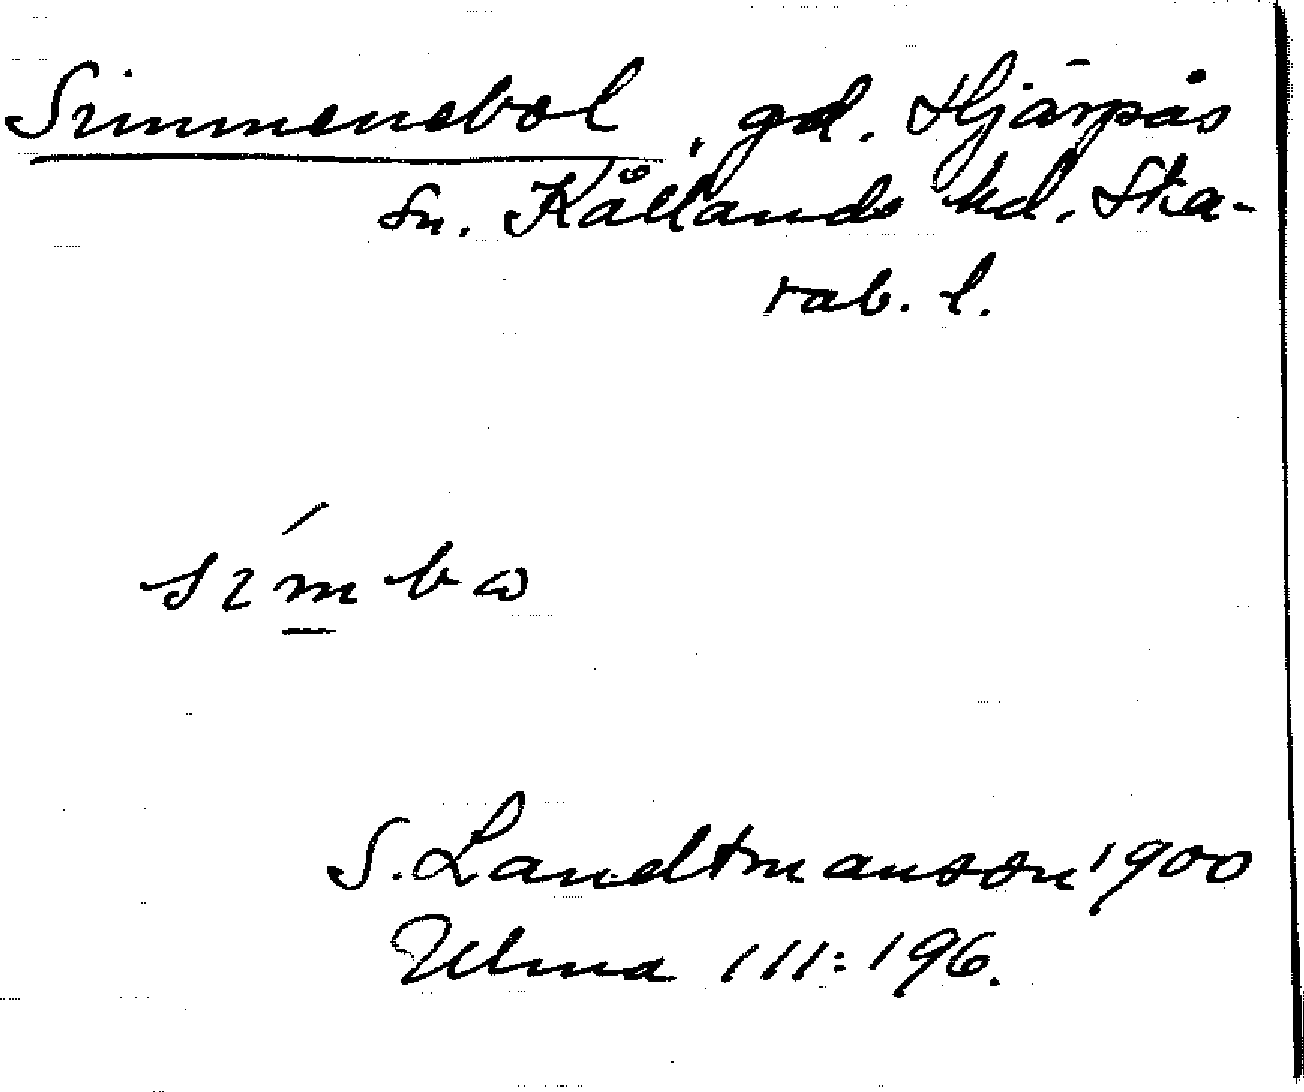 Simmenebol, gd. Hjärpås
sn. Kållands hd. Ska-
rab. l.
sɩ́m̲bω
S. Landtmanson 1900
Ulma 111:196.